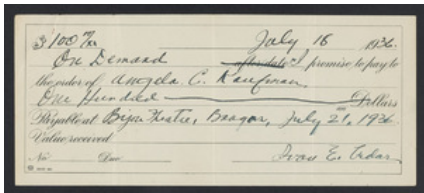 $100 no/xx July 16 1936
On Demand after date I promise to pay to
the order of Angela C. Kaufman
One Hundred Dollars
Payable at Bijou Theatre, Bangor, July 21, 1936
Value received
No Due Ivan E.